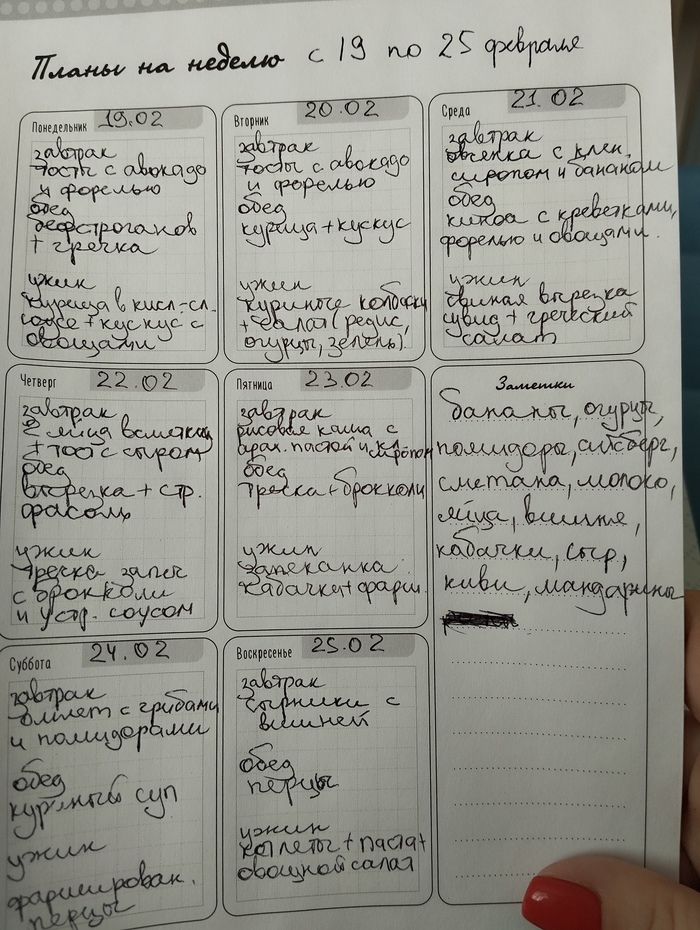 Планы на неделю с 19 по 25 февраля
Понедельник 19.02
завтрак
тосты с авокадо
и форелью
обед
бефстроганов
+ гречка
ужин
курица в кисл.-сл.
соусе + кускус с
овощами
Вторник 20.02
завтрак
тосты с авокадо
и форелью
обед
курица + кускус
ужин
куриные колбаски
+ салат (редис,
огурцы, зелень).
Среда 21.02
завтрак
овсянка с клен.
сиропом и бананом
обед
киноа с креветками,
форелью и овощами.
ужин
свиная вырезка
сувид + греческий
салат
Четверг 22.02
завтрак
2 яйца всмятку
+ тост с сыром
обед
вырезка + стр.
фасоль
ужин
треска запеч
с брокколи
и устр. соусом
Пятница 23.02
завтрак
рисовая каша с
арах. пастой и кл. сиропом
обед
треска + брокколи
ужин
запеканка
кабачки + фарш.
Заметки
бананы, огурцы,
помидоры, айсберг,
сметана, молоко,
яйца, вишня,
кабачки, сыр,
киви, мандарины
Суббота 24.02
завтрак
омлет с грибами
и помидорами
обед
куриный суп
ужин
фарширован.
перцы
Воскресенье 25.02
завтрак
сырники с
вишней
обед
перцы
ужин
котлеты + паста +
овощной салат